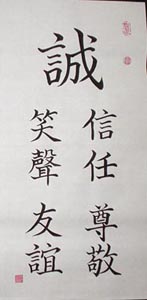 誠
信任 尊敬
笑聲 友誼